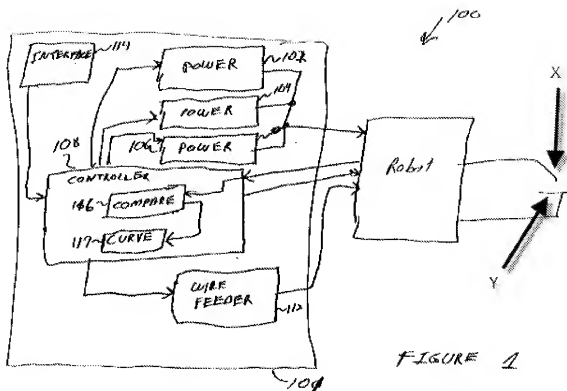 100
INTERFACE
114
POWER
102
POWER
104
106
POWER
108
CONTROLLER
116
COMPARE
117
CURVE
WIRE
FEEDER
112
Robot
X
Y
FIGURE 1